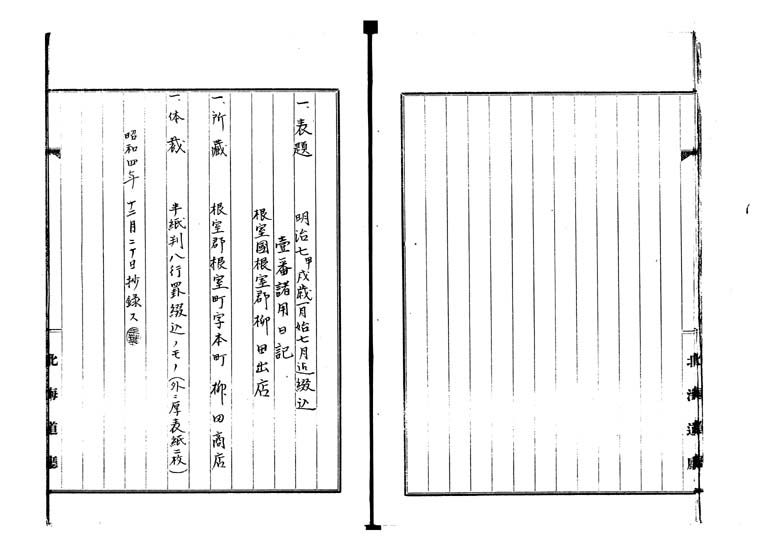 一、表題　明治七甲戌歳一月始七月迄綴込
壹番諸用日記
根室國根室郡柳田出店
一、所藏　根室郡根室町字本町　柳田商店
一、体裁　半紙判八行罫綴込ノモノ（外ニ厚表紙二枚）
昭和四年十二月二十日抄録ス
北海道廳
北海道廳